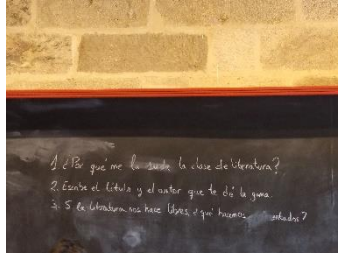 1. ¿Por qué me la suda la clase de literatura?
2. Escribe el título y el autor que te dé la gana.
3. Si la literatura nos hace libres, ¿qué hacemos sentados?